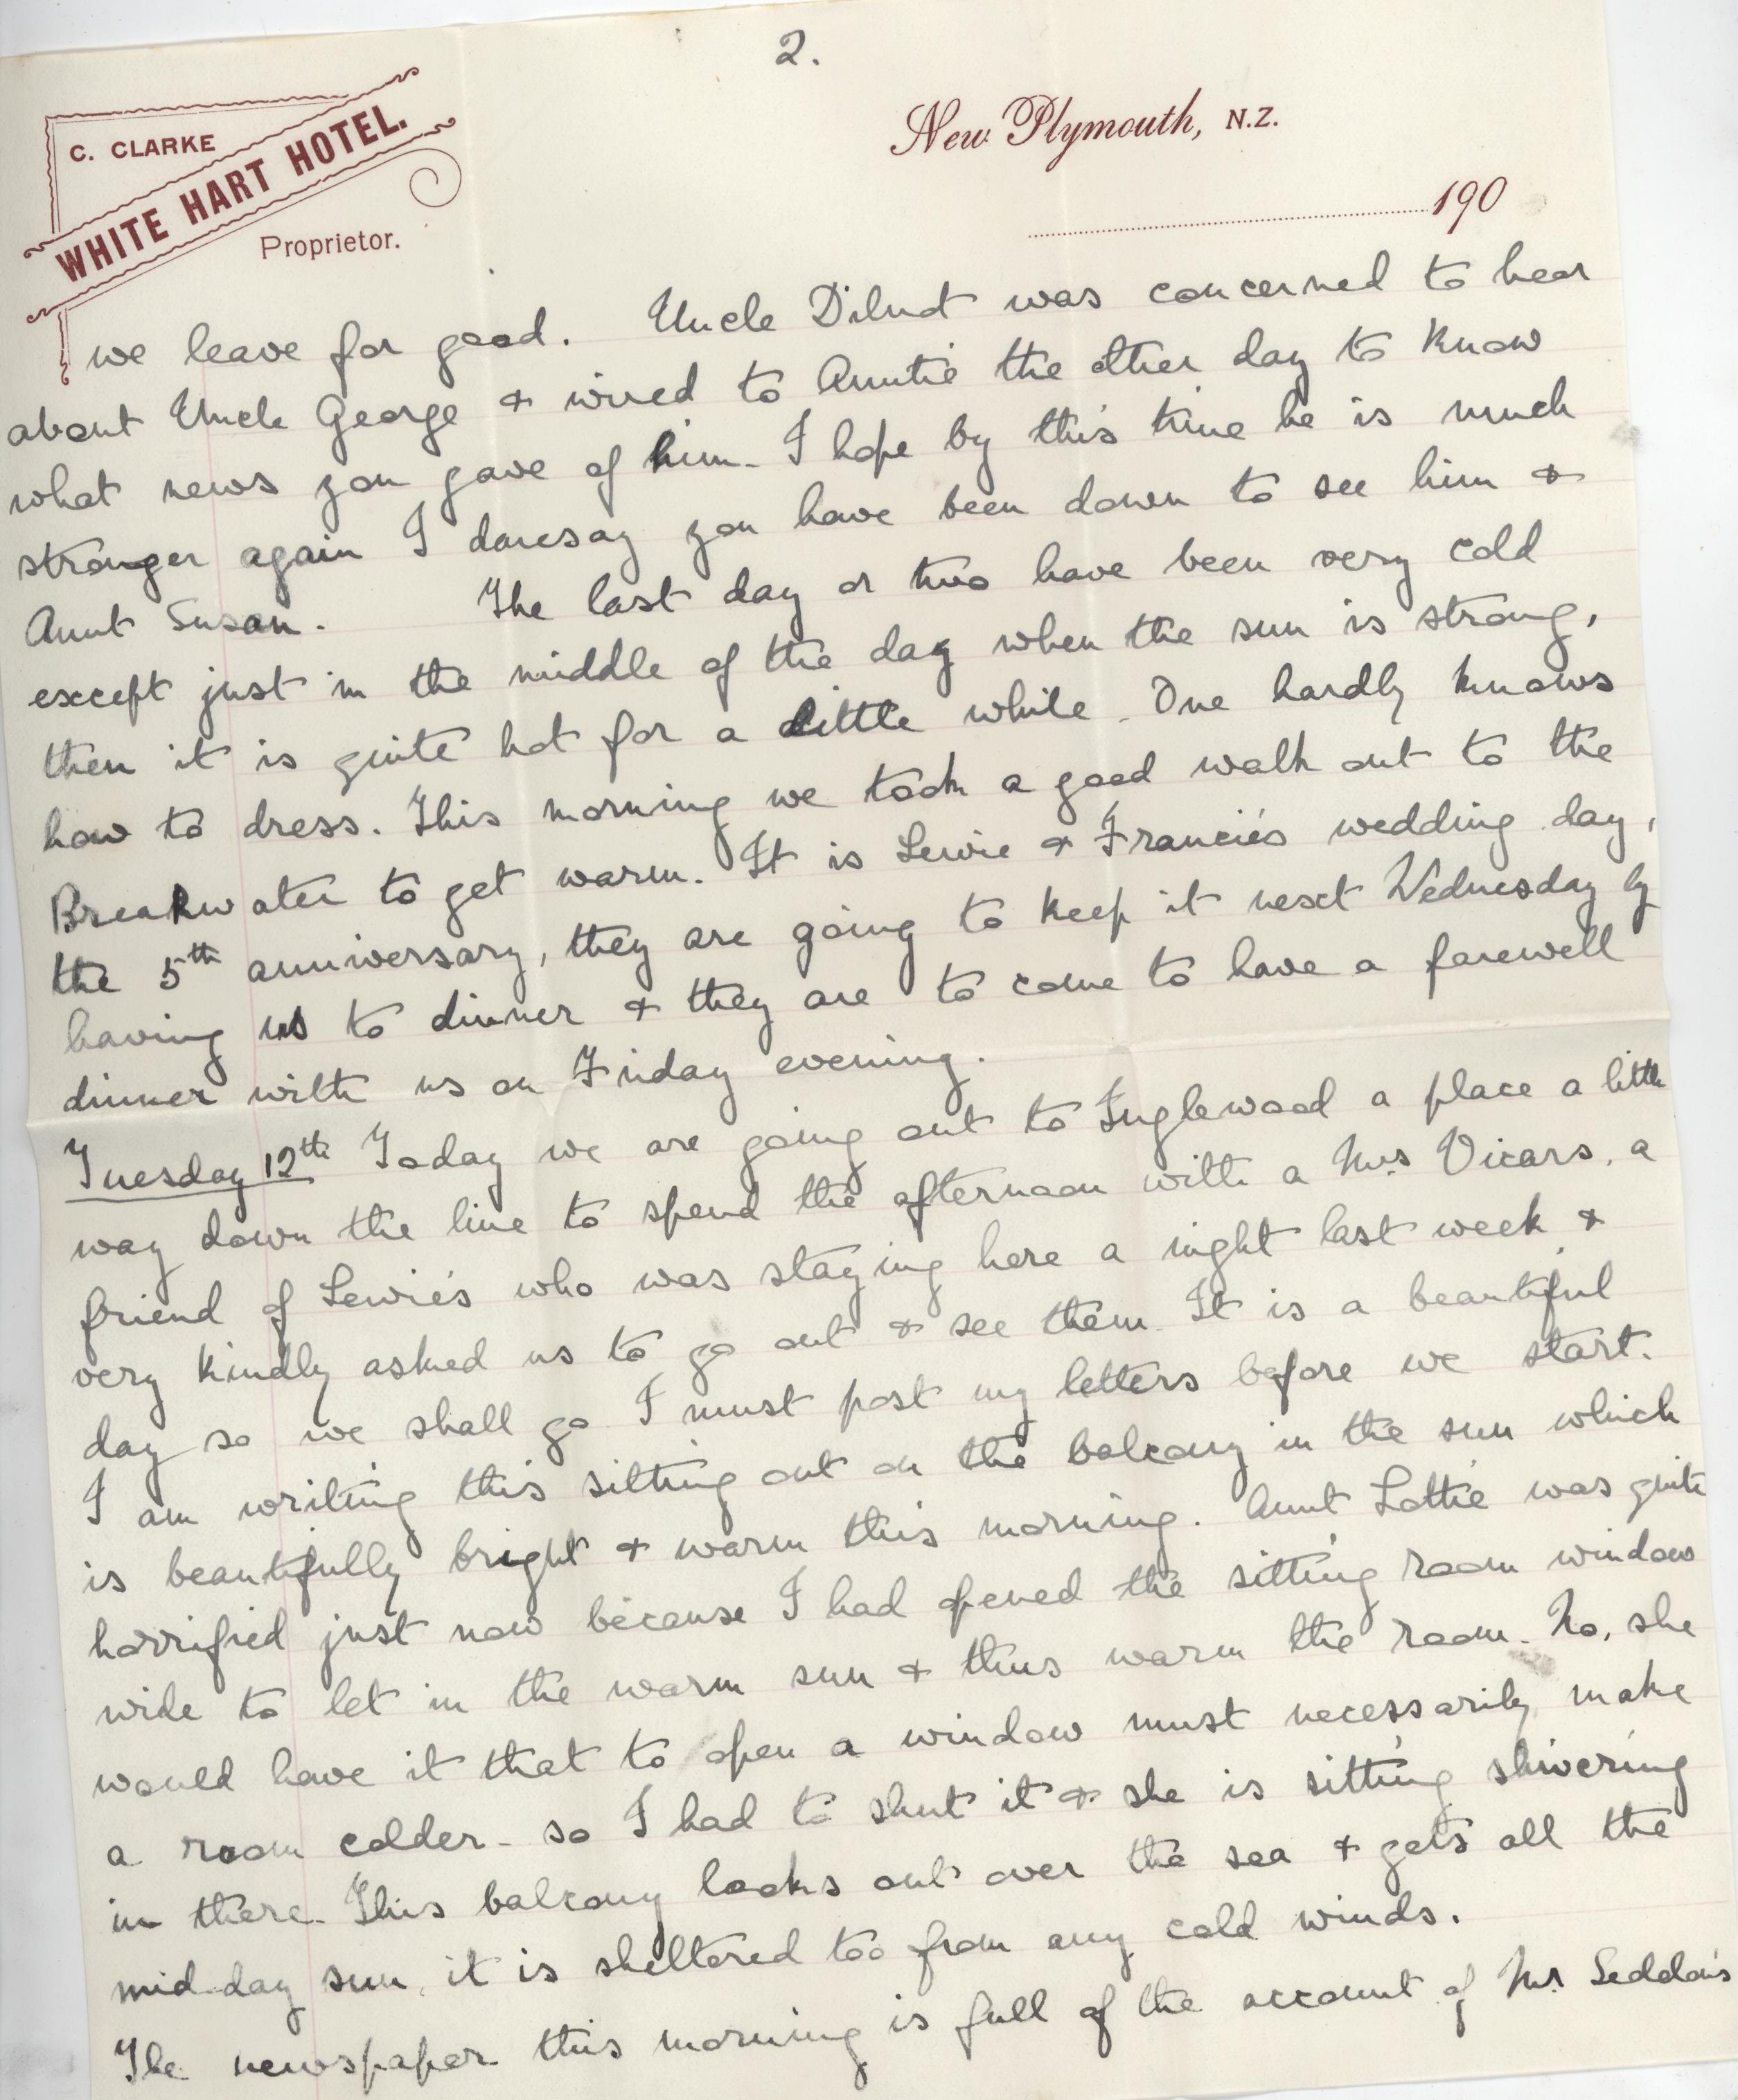 2.
C. CLARKE
WHITE HART HOTEL.
Proprietor.
New Plymouth, N.Z.
190
we leave for good. Uncle Dilnot was concerned to hear
about Uncle George & wired to Auntie the other day to know
what news you gave of him. I hope by this time he is much
stronger again I daresay you have been down to see him &
Aunt Susan. The last day or two have been very cold
except just in the middle of the day when the sun is strong,
then it is quite hot for a little while. One hardly knows
how to dress. This morning we took a good walk out to the
Breakwater to get warm. It is Lewie & Francie's wedding day,
the 5th anniversary, they are going to keep it next Wednesday by
having us to dinner & they are to come to have a farewell
dinner with us on Friday evening.
Tuesday 12th Today we are going out to Inglewood a place a little
way down the line to spend the afternoon with a Mrs Vicars, a
friend of Lewie's who was staying here a night last week &
very kindly asked us to go out & see them. It is a beautiful
day so we shall go. I must post my letters before we start.
I am writing this sitting out on the balcony in the sun which
is beautifully bright & warm this morning. Aunt Lottie was quite
horrified just now because I had opened the sitting room window
wide to let in the warm sun & thus warm the room. No, she
would have it that to open a window must necessarily make
a room colder - so I had to shut it & she is sitting shivering
in there. This balcony looks out over the sea & gets all the
mid-day sun, it is sheltered too from any cold winds.
The newspaper this morning is full of the account of Mr Seddon's